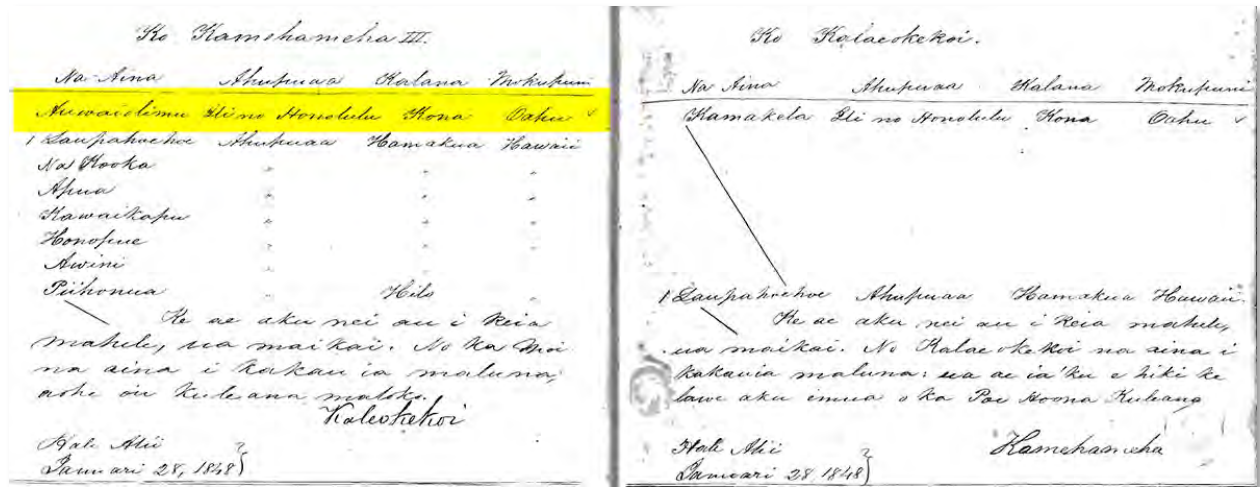 Ko Kamehameha III.
Na Aina Ahupuaa Kalana Mokupuni
Auwaiolimu Ili no Honolulu Kona Oahu ✓
1 Laupahoehoe Ahupuaa Hamakua Hawaii
Na Kooka " " "
Apua " " "
Kawaikapu " " "
Honopue " " "
Awini " " "
Piihonua " Hilo "
Ke ae aku nei au i keia
mahele, ua maikai. No ka Moi
na aina i kakau ia maluna;
aohe o'u kuleana maloko.
Kaleokekoi
Hale Alii
Ianuari 28, 1848}
Ko Kalaeokekoi.
Na Aina Ahupuaa Kalana Mokupuni
Kamakela Ili no Honolulu Kona Oahu ✓
1 Laupahoehoe Ahupuaa Hamakua Hawaii
Ke ae aku nei au i keia mahele,
ua maikai. No Kalaeokekoi na aina i
kakauia maluna: ua ae ia'ku e hiki ke
lawe aku imua o ka Poe Hoona Kuleana
Kamehameha
Hale Alii
Ianuari 28, 1848}